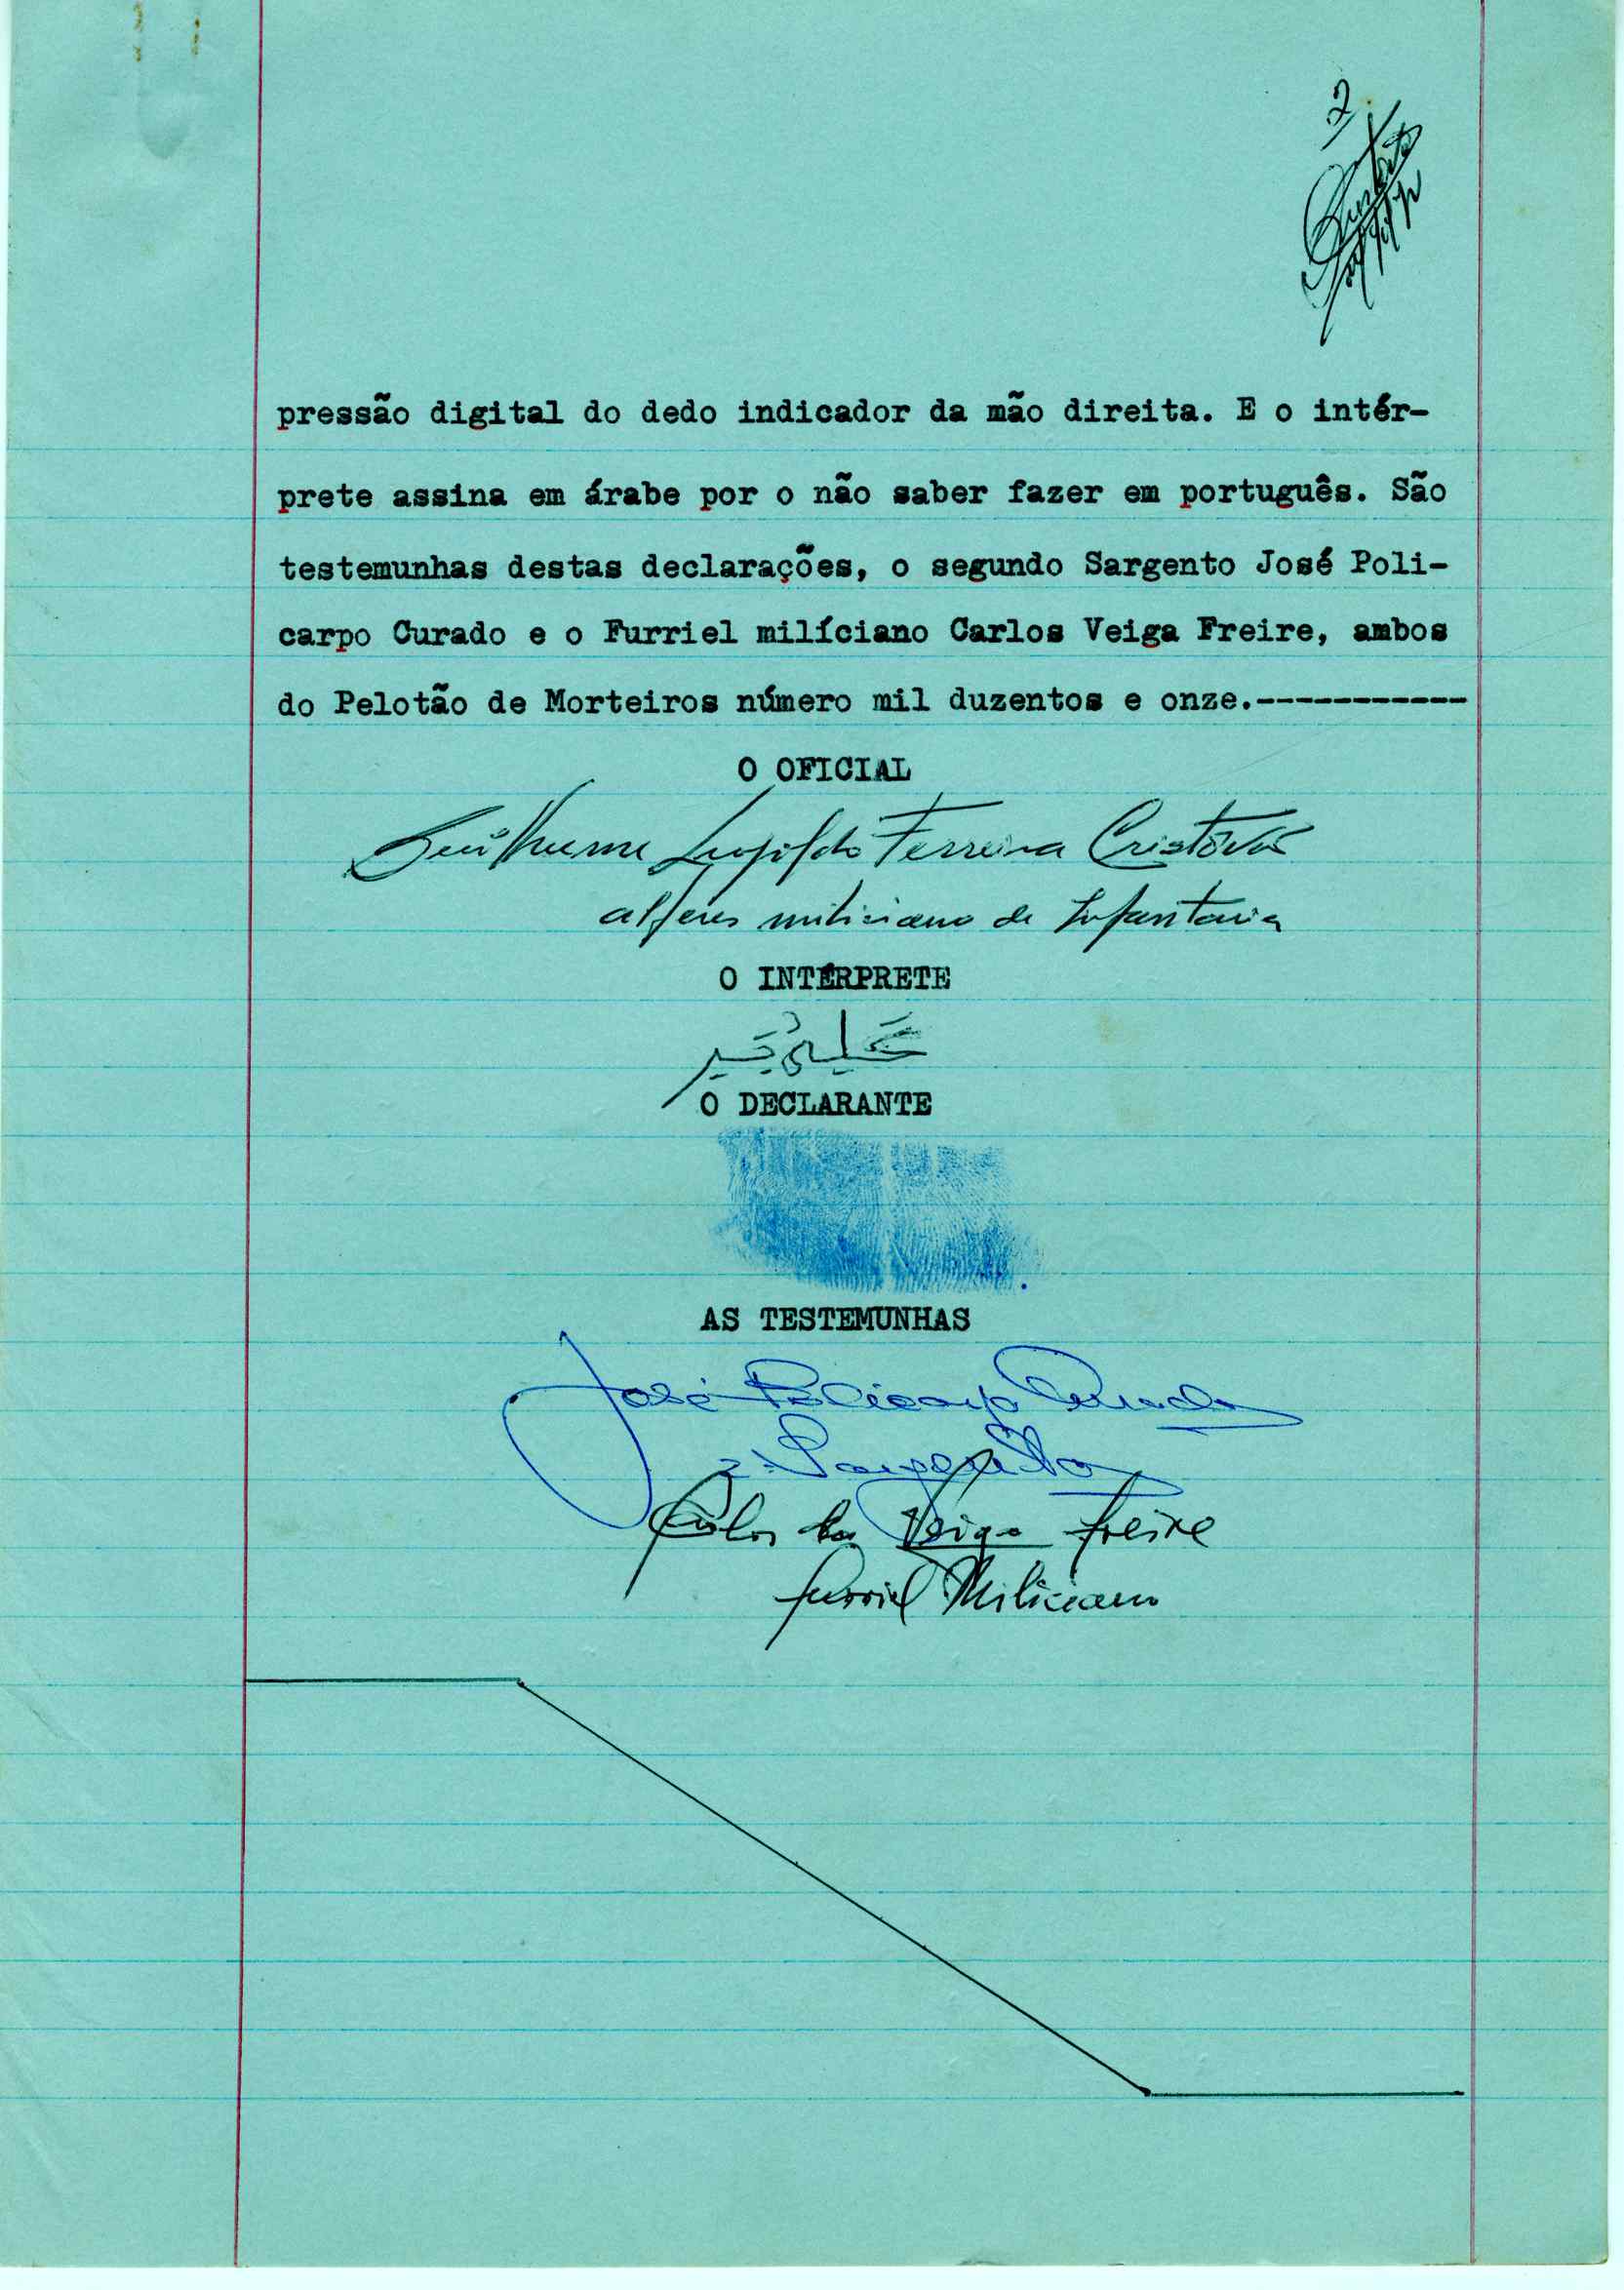 2
pressão digital do dedo indicador da mão direita. E o intér-
prete assina em árabe por o não saber fazer em português. São
testemunhas destas declarações, o segundo Sargento José Poli-
carpo Curado e o Furriel milíciano Carlos Veiga Freire, ambos
do Pelotão de Morteiros número mil duzentos e onze.-----------
O OFICIAL
Guilherme Leopoldo Ferreira Cristóvão
alferes miliciano de Infantaria
O INTÉRPRETE
O DECLARANTE
AS TESTEMUNHAS
José Policarpo Curado
2º Sargento
Carlos da Veiga Freire
furriel Miliciano